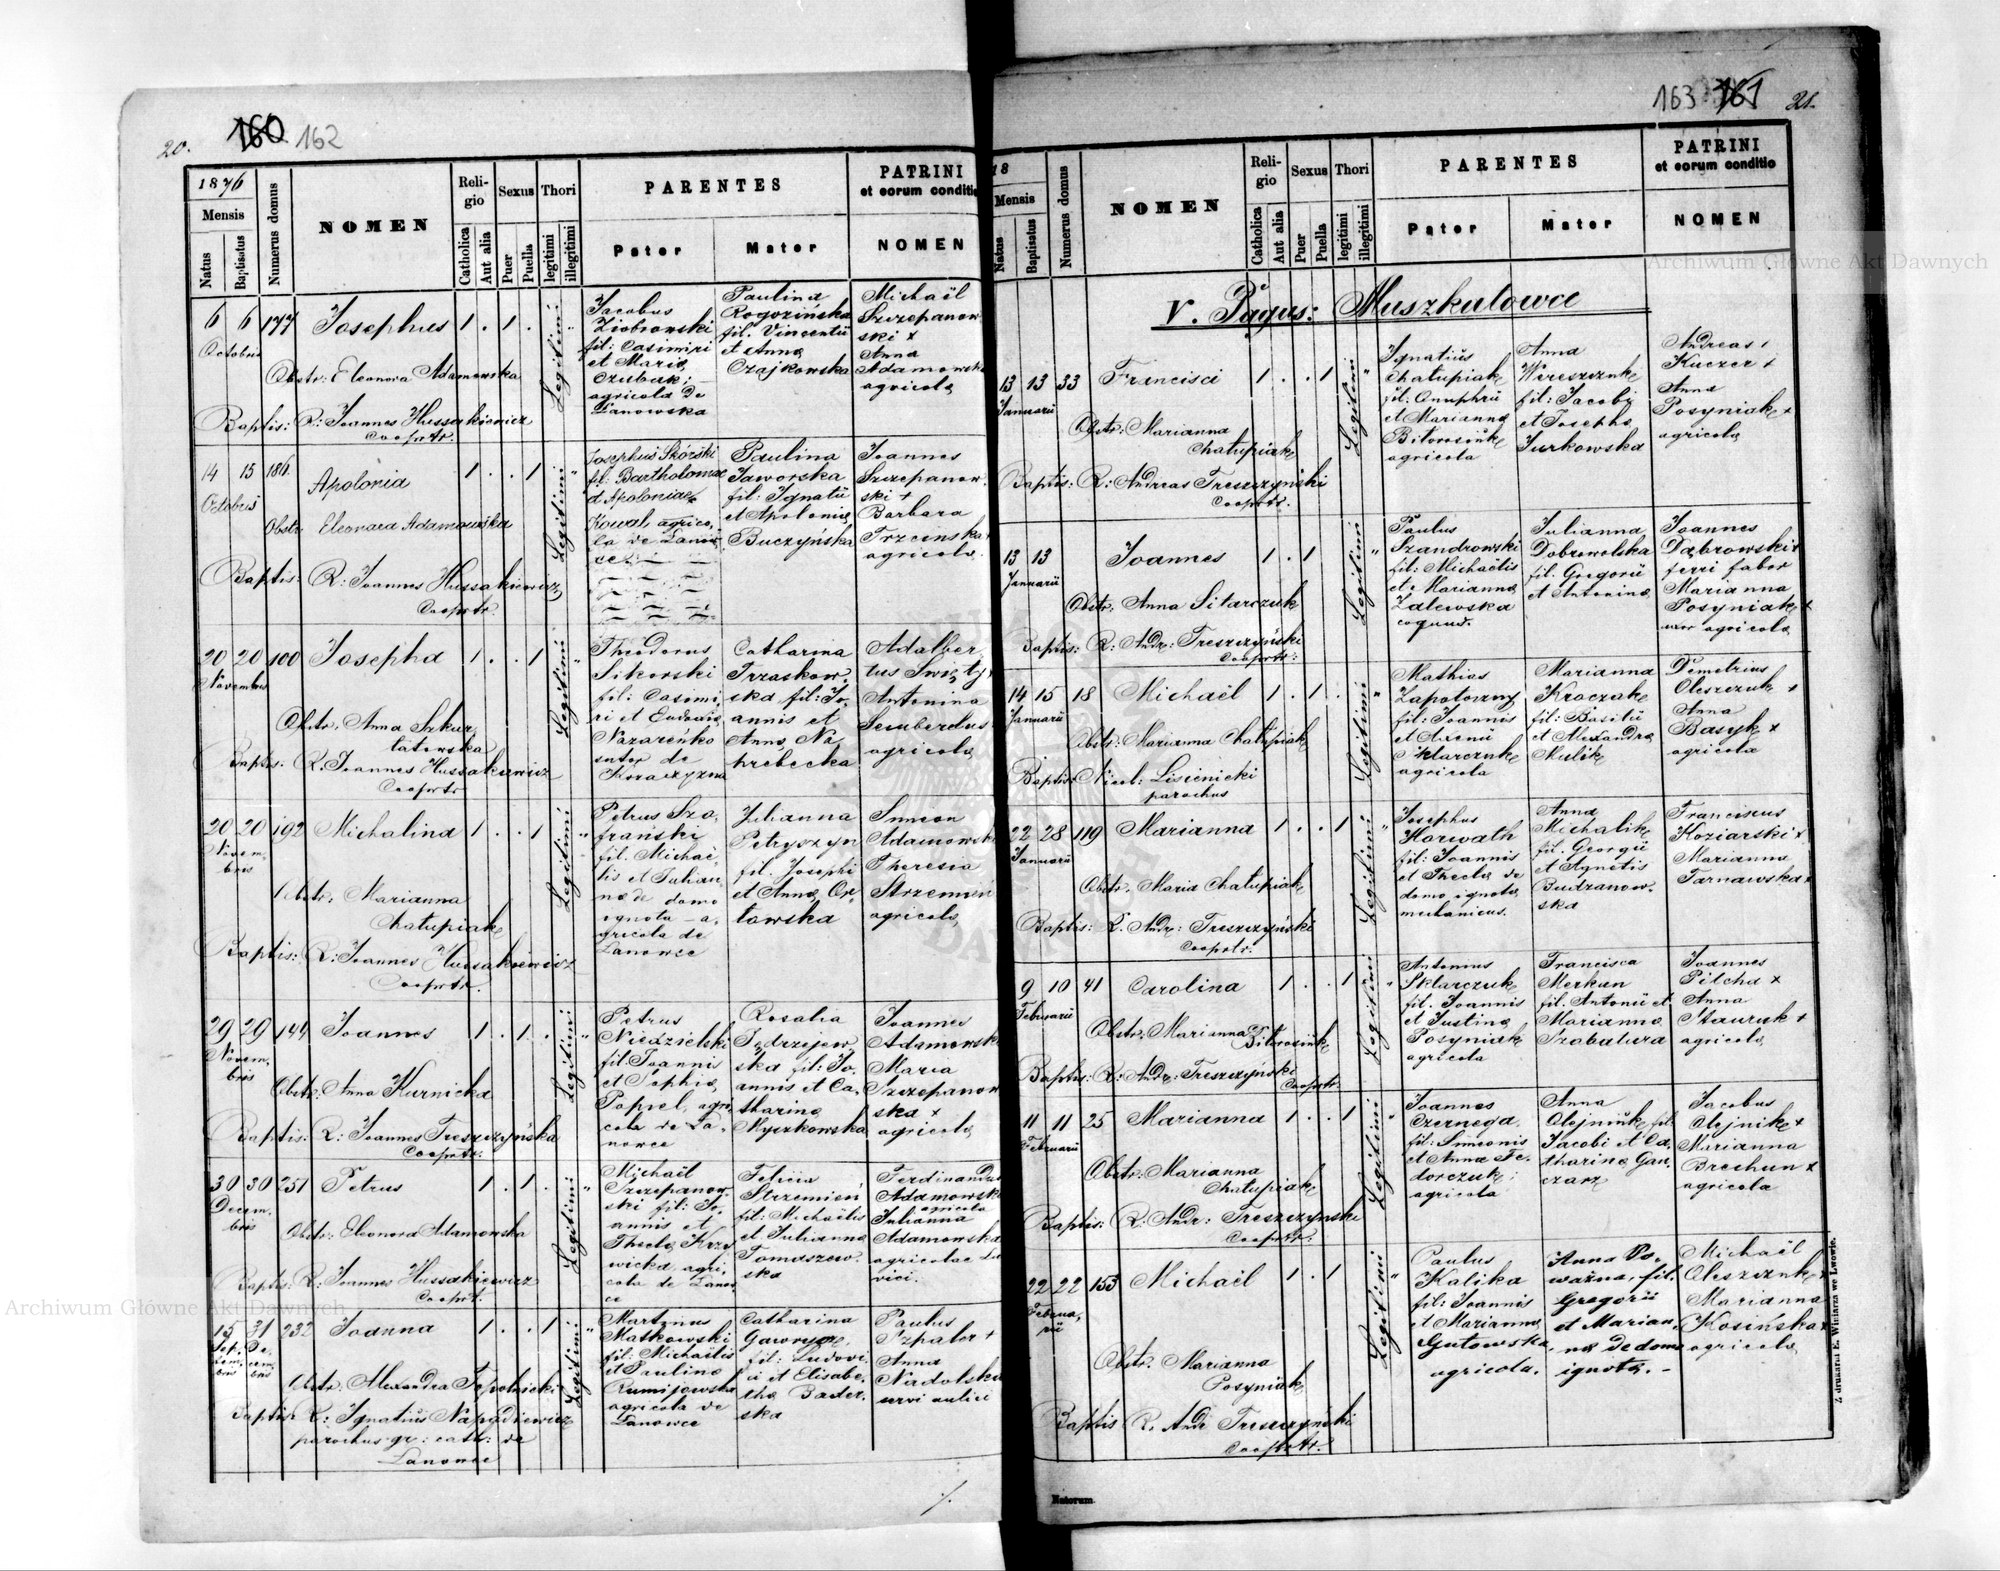 20.
160 162
1876
Mensis
Natus
Baptisatus
Numerus domus
NOMEN
Religio
Catholica
Aut alia
Sexus
Puer
Puella
Thori
legitimi
illegitimi
PARENTES
Pater
Mater
PATRINI
et eorum conditio
NOMEN
6 6 177 Josephus 1 . 1 .
Octobris
Obstr: Eleonora Adamowska
Baptis: R: Joannes Hussakiewicz
Cooprtr.
Legitimi
Jacobus
Ziobrowski
fil: Casimiri
et Maria
Czubak;
agricola de
Lanowska
Paulina
Rogozińska
fil. Vincentii
et Anna
Czajkowska
Michaël
Szczepanow
ski +
Anna
Adamowska
agricola
14 15 186 Apolonia 1 . . 1
Octobris
Obstr. Eleonora Adamowska
Baptis: R: Joannes Hussakiewicz
Cooprtr.
Legitimi
Josephus Skórski
fil. Bartholomae
et Apoloniae
Kowal agrico,
la de Lanow
ce
Paulina
Jaworska
fil: Ignatii
et Apolonia
Buczyńska
Joannes
Szczepanow
ski +
Barbara
Trzcinska
agricola.
20 20 100 Josepha 1 . . 1
Novembris
Obstr. Anna Szkur
latowska
Baptis: R. Joannes Hussakiewicz
Cooprtr
Legitimi
Theodorus
Sikorski
fil: Casimi,
ri et Eudoxia
Nazareńko
sutor de
Koraczyzna
Catharina
Trzaskow,
ska fil: Jo,
annis et
Anna Na
hrebecka
Adalber
tus Swięty
Antonina
agricola
20 20 192 Michalina 1 . . 1
Novem,
bris
Obstr. Marianna
Chałupiak
Baptis: R: Joannes Hussakiewicz
Cooprtr.
Legitimi
Petrus Sza,
frański
fil. Michaë,
lis et Juhan
na de domo
ignota - a,
gricola de
Lanowce
Juhanna
Petryszyn
fil. Josephi
et Anna Or,
łowska
Simeon
Adamowski
Theresia
Strzemień
agricola
29 29 144 Joannes 1 . 1 .
Novem,
bris
Obstr. Anna Kurnicka
Baptis: R: Joannes Treszczyńska
Cooprtr.
Legitimi
Petrus
Niedzielski
fil: Joannis
et Sophia
Poppel, agri
cola de La,
nowce
Rosalia
Jędrzejew,
ska fil: Jo,
annis et Ca,
tharina
Myszkowska
Joannes
Adamowski
Maria
Szczepanow
ska +
agricola
30 30 251 Petrus 1 . 1 .
Decem,
bris
Obstr: Eleonora Adamowska
Baptis: R. Joannes Hussakiewicz
Cooprt.
Legitimi
Michaël
Szczepanow,
ski fil: Jo,
annis et
Thecla Krzy
wicka, agri,
cola de Lanow
ce
Felicia
Strzemień
fil: Michaëlis
et Julianna
Tomaszew,
ska
Ferdinandus
Adamowski
agricola
Julianna
Adamowska
agricolae La
vici.
15 31 232 Joanna 1 . . 1
Sep,
tem,
bris
De,
cem,
bris
Obstr. Alexandra Topolnicki
Baptis: R: Ignatius Napadiewicz
parochus gr: cath: de
Lanowce
Legitimi
Martinus
Matkowski
fil: Michaëlis
et Paulina
Rumijowska
agricola de
Lanowce
Catharina
fil: Ludovi,
ci et Elisabe,
tha Bader,
ska
Paulus
Szpaler +
Anna
Nadolska
servi aulici
163 161 21.
18
Mensis
Natus
Baptisatus
Numerus domus
NOMEN
Religio
Catholica
Aut alia
Sexus
Puer
Puella
Thori
legitimi
illegitimi
PARENTES
Pater
Mater
PATRINI
et eorum conditio
NOMEN
V. Pagus: Muszkutowce
13 13 33 Francisci 1 . . 1
Januarii
Obstr: Marianna
Chałupiak
Baptis: R: Andreas Treszczyński
Cooprtr.
Legitimi
Ignatius
Chałupiak
fil: Onuphrii
et Marianna
Bitorosiuk
agricola
Anna
Wereszczuk
fil: Jacobi
et Josepha
Jurkowska
Andreas
Kuczer +
Anna
Posyniak +
agricola
13 13 Joannes 1 . 1
Januarii
Obstr. Anna Sitarczuk
Baptis: R: Andr: Treszczyński
Cooprtr:
Legitimi
Paulus
Szandrowski
fil: Michaëlis
et Marianna
Zalewska
coquus.
Julianna
Dobrowolska
fil. Gregorii
et Antonina
Joannes
Dąbrowski +
ferri faber
Marianna
Posyniak +
uxor agricola
14 15 18 Michaël 1 . 1 .
Januarii
Obstr: Marianna Chałupiak
Baptis: Nicol: Lisienicki
parochus
Legitimi
Mathias
Zapotoczny
fil: Joannis
et Axenii
Sklarczuk
agricola
Marianna
Kraczak
fil: Basilii
et Alexandra
Mulik
Demetrius
Oleszczuk +
Anna
Basyk +
agricola
22 28 119 Marianna 1 . . 1
Januarii
Obstr. Maria Chałupiak
Baptis: R. Andr: Treszczyński
Cooprtr.
Legitimi
Josephus
Horwath
fil: Joannis
et Thecla de
domo ignota
mechanicus.
Anna
Michalik
fil. Georgii
et Agnetis
Budzanow,
ska
Franciscus
Koziarski +
Marianna
Tarnawska +
9 10 41 Carolina 1 . . 1
Februarii
Obstr. Marianna Bitorosiuk
Baptis: R: Andr: Treszczyński
Cooprtr.
Legitimi
Antonius
Sklarczuk
fil. Joannis
et Justina
Posyniak
agricola
Francisca
Merkun
fil. Antonii et
Marianna
Szabatura
Joannes
Pilcha +
Anna
Stauruk +
agricola
11 11 25 Marianna 1 . . 1
Februarii
Obstr. Marianna
Chałupiak
Baptis: R: Andr: Treszczyński
Cooprtr.
Legitimi
Joannes
Czernega
fil: Simeonis
et Anna Fe,
dorczuk;
agricola
Anna
Olejniuk fil:
Jacobi et Ca,
tharina Gan,
czarz
Jacobus
Olejnik +
Marianna
Breshun +
agricola
22 22 153 Michaël 1 . 1
Februa,
rii
Obstr. Marianna
Posyniak
Baptis R. Andr Treszczyński
Cooprtr.
Legitimi
Paulus
Kalika
fil: Joannis
et Marianna
Gutowska,
agricola.
Anna Po,
ważna, fil.
Gregorii
et Marian,
na de domo
ignota. -
Michaël
Oleszczuk +
Marianna
Kosińska +
agricola
Z drukarni E. Winiarza we Lwowie.
Natorum
Archiwum Główne Akt Dawnych
Archiwum Główne Akt Dawnych